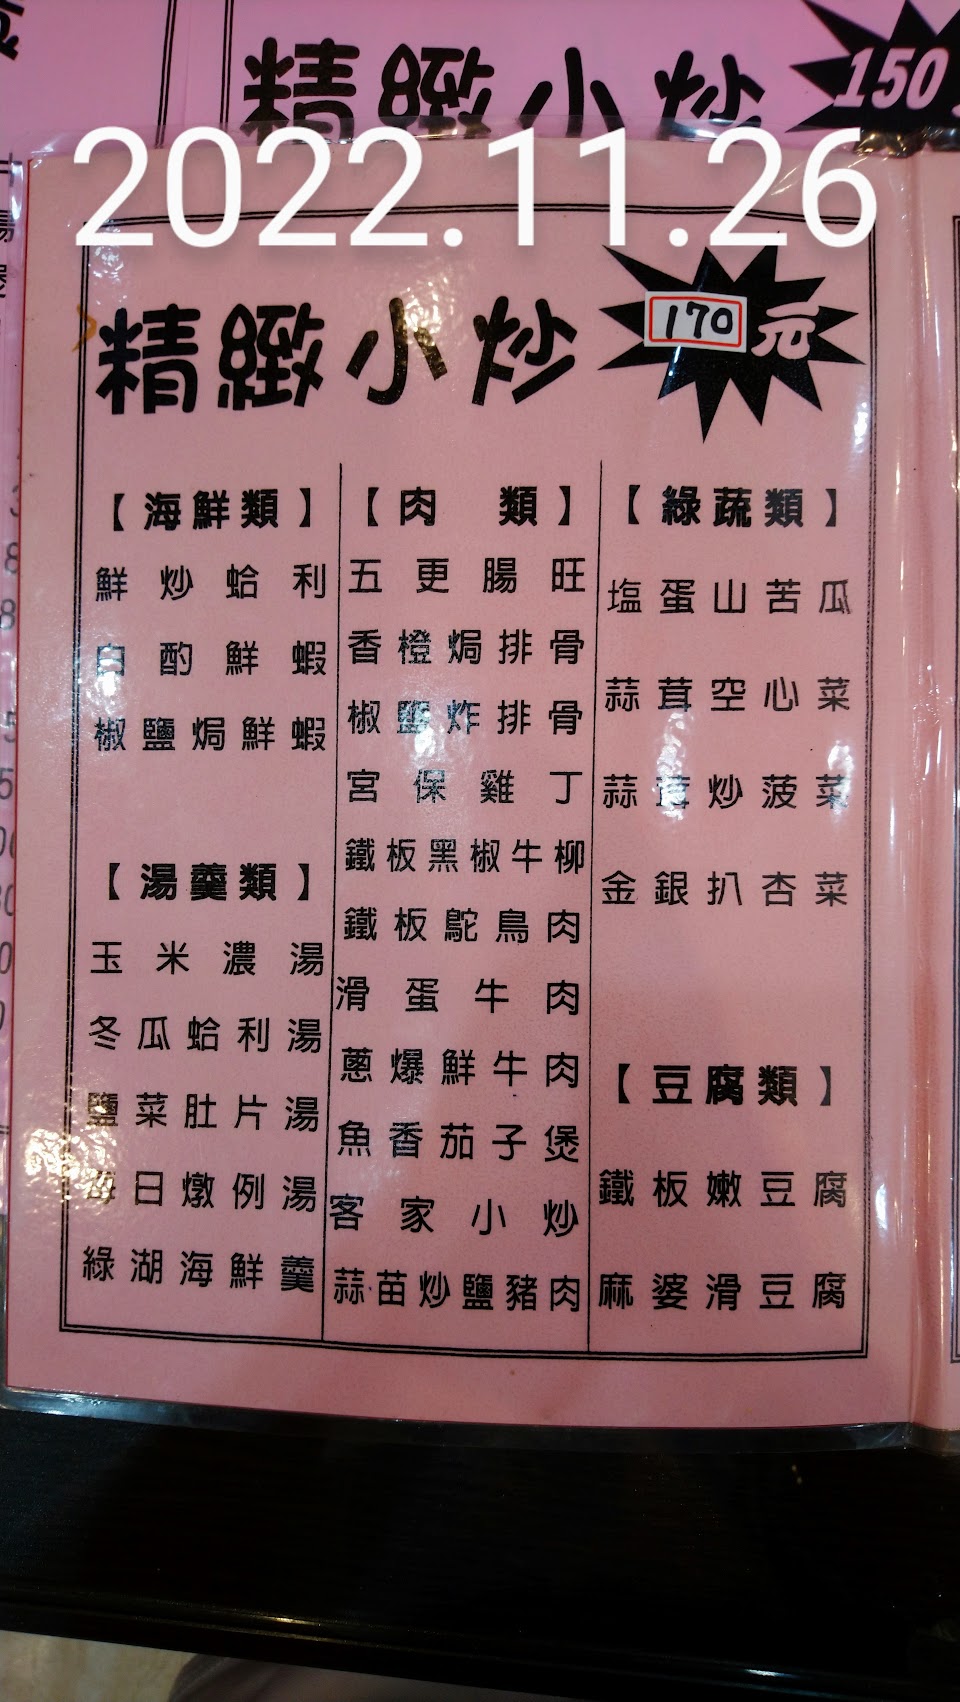 精緻小炒
150
2022.11.26
精緻小炒 170元
【海鮮類】
鮮炒蛤利
白酌鮮蝦
椒鹽焗鮮蝦
【湯羹類】
玉米濃湯
冬瓜蛤利湯
鹽菜肚片湯
每日燉例湯
綠湖海鮮羹
【肉 類】
五更腸旺
香橙焗排骨
椒鹽炸排骨
宮保雞丁
鐵板黑椒牛柳
鐵板鴕鳥肉
滑蛋牛肉
蔥爆鮮牛肉
魚香茄子煲
客家小炒
蒜苗炒鹽豬肉
【綠蔬類】
塩蛋山苦瓜
蒜茸空心菜
蒜茸炒菠菜
金銀扒杏菜
【豆腐類】
鐵板嫩豆腐
麻婆滑豆腐